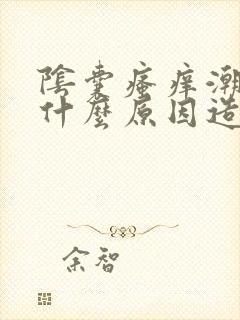 陰囊瘙痒潮
什麼原因造
余智